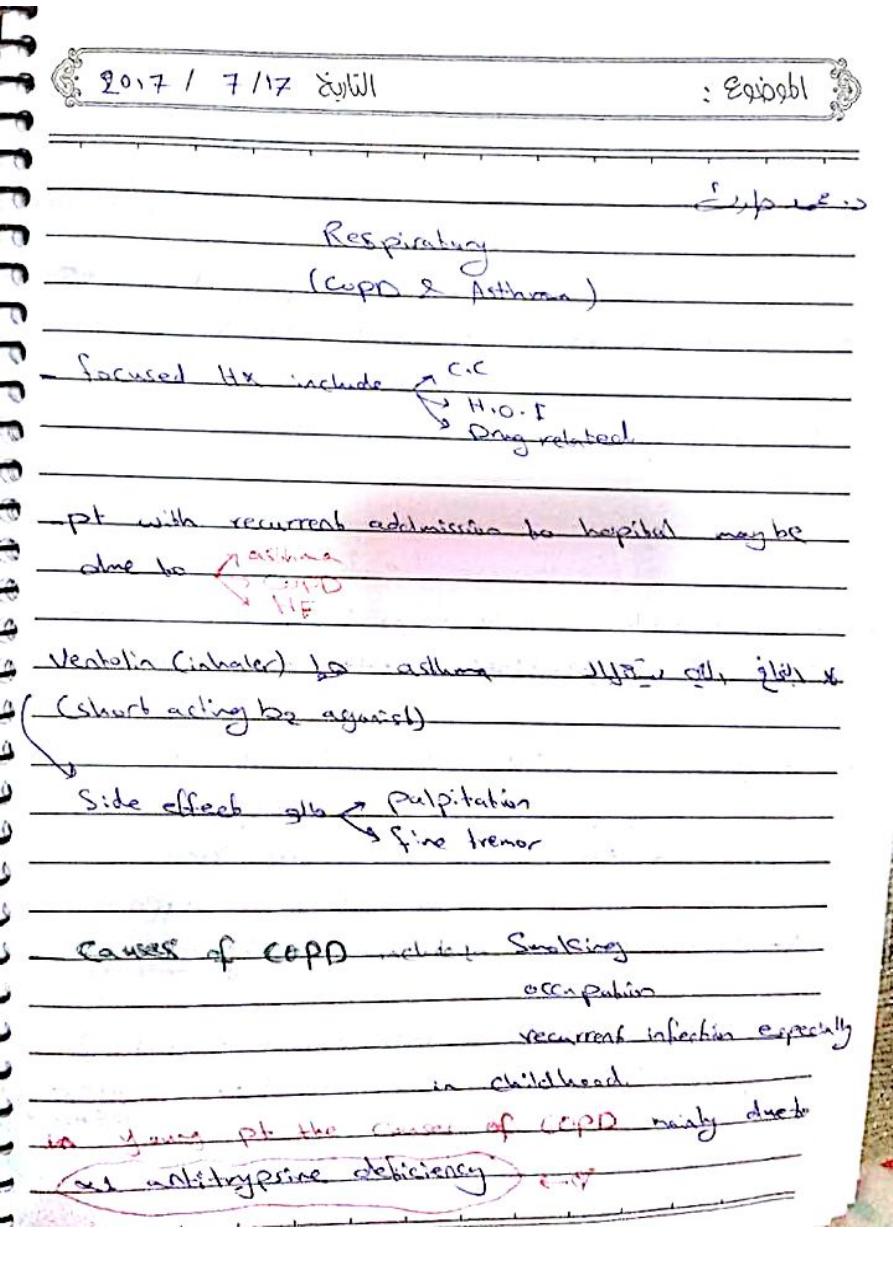 الموضوع :
التاريخ 2017 / 7/17
د. محمد حارث
Respiratory
(COPD & Asthma)
- focused Hx include → C.C
→ H.O.I
→ Drug related
- pt with recurrent addmission to hopital may be
due to → asthma
→ COPD
→ HF
Ventolin (inhaler) asthma
(short acting b2 agonist)
Side effect → palpitation
→ fine tremor
- Causes of COPD include: Smoking
occupation
recurrent infection especially
in childhood.
in young pt the causes of COPD mainly due to
α1 antitrypsine deficiency